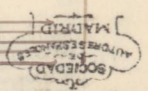 SOCIEDAD
DE
AUTORES ESPAÑOLES
MADRID